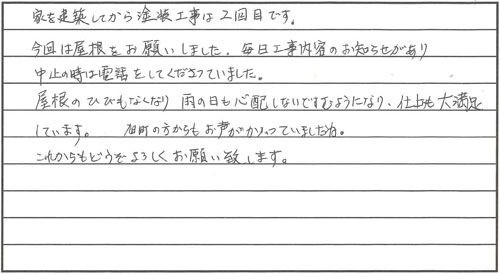 家を建築してから塗装工事は2回目です。
今回は屋根をお願いしました。毎日工事内容のお知らせがあり
中止の時は電話をしてくださっていました。
屋根のひびもなくなり 雨の日も心配しないですむようになり、仕上も大満足
しています。 の方からもお声がかかっていましたね。
これからもどうぞよろしくお願い致します。